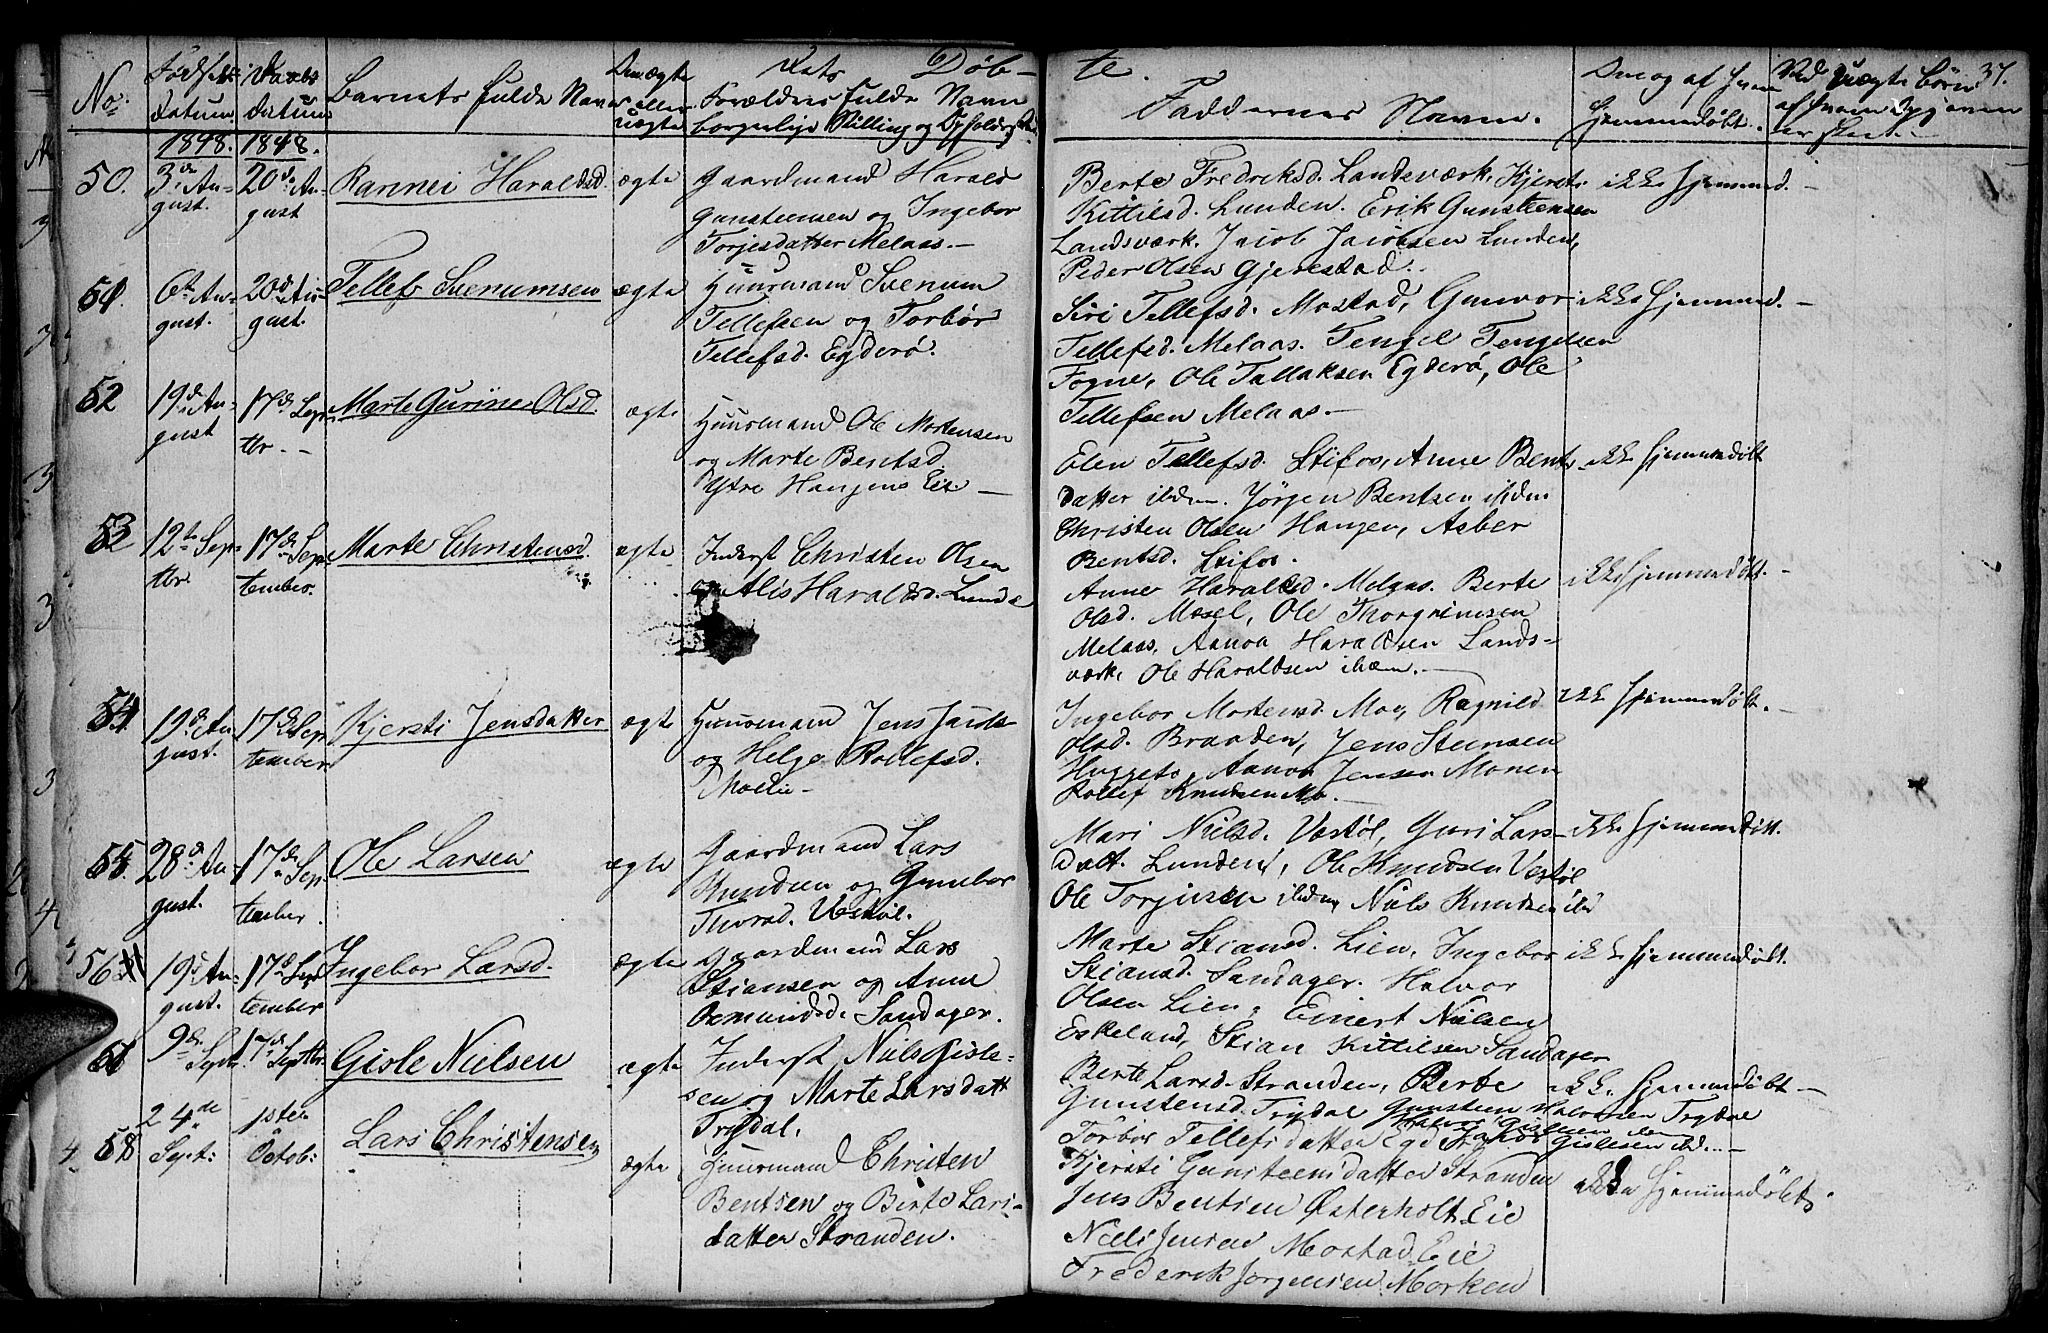 Døb-
te.
37.
No:
Fødsels
Datum
Daabs
Datum
Barnets fulde Navn
Om ægte
eller
uægte
Forældres fulde Navn
borgerlige Stilling og Opholdssted
Faddernes Navne.
Om og af hvem
hjemmedøbt.
Ved uægte Børn
1848. 1848.
50.
3de Au-
gust.
20de Au-
gust
Rannei Haraldsd.
ægte
Gaardmand Harald
Gunstensen og Ingebor
Torjesdatter Melaas.-
Berte Fredriksd. Landsværk, Kjersti
Kittilsd. Lunden. Erik Gunsteensen
Landsværk. Jacob Jacobsen Lunden,
Peder Olsen Gjerestad.
ikke hjemmed.
51.
6te Au-
gust.
20de Au-
gust.
Tellef Svenumsen
ægte
Huusmand Svenum
Tellefsen og Torbør
Tellefsd. Egderø.
Siri Tellefsd. Mostad, Gunvor
Tellefsd. Melaas. Tengel Tengelsen
Fogne, Ole Tallaksen Egderø, Ole
Tellefsen Melaas.-
ikke hjemmed.-
52
19de Au-
gust
17de Sep-
tbr.-
Marte Gurine Olsd.
ægte
Huusmand Ole Mortensen
og Marte Bentsd.
Ytre Haugens Eie -
Elen Tellefsd. Stifos, Anne Bents
datter ibdm. Jørgen Bentsen ibdm
Christen Olsen Haugen, Asber
Bentsd. Stifos.
ikke hjemmedøbt
53
12te Sep-
tbr.
17de Sep-
tember.
Marte Christensd.
ægte
Inderst Christen Olsen
og Alis Haraldsd. Lunde
Anne Haraldsd. Melaas. Berte
Olsd. Mosel, Ole Thorgrimsen
Melaas. Aanon Haraldsen Lands-
værk, Ole Haraldsen ibdm.-
ikke hjemmedøbt.-
54.
19de Au-
gust.
17de Sep-
tember
Kjersti Jensdatter
ægte
Huusmand Jens
og Helge Rollefsd.
Ingebor Mortensd. Mo, Ragnild
Olsd. Braaden, Jens Steensen
Huggeto, Aanon Jensen Monen
Rollef Knudsen Mo.-
ikke hjemmedøbt.-
55.
28de Au-
gust.
17de Sep-
tember.
Ole Larsen
ægte
Gaardmand Lars
Knudsen og Gunebor
Thorsd. Vestøl.
Mari Nielsd. Vestøl, Guri Lars-
datt. Lunden, Ole Knudsen Vestøl
Ole Torjusen ibdm, Niels Knudsen ibd
ikke hjemmedøbt.
56
19de Au-
gust.
17de Sep-
tember
Ingebor Larsd.
ægte
Gaardmand Lars
Stiansen og Anne
Osmundsd. Sandager.
Marte Stiansd. Lien, Ingebor
Stiansd. Sandager. Halvor
Olsen Lien, Einert Nielsen
Eskeland, Stian Kittilsen Sandager
ikke hjemmedøbt.
9de
Septr.
17de
Septbr.
Gisle Nielsen
ægte
Inderst Niels Gisle-
sen og Marte Larsdatt
Trydal.
Berte Larsd. Stranden, Berte
Gunstensd. Trydal Gunsteen Halvorsen Trydal
ikke hjemmedøbt-
58
24de
Sept:
1ste
Octob:
Lars Christensen
ægte
Huusmand Christen
Bentsen og Berte Lars-
datter Stranden.
Torbor Tellefsdatter Egd Gislesen ibd.-
Kjersti Gunsteensdatter Stranden
Jens Bentsen Østerholt Eie
Niels Jensen Mostad Eie
Frederik Jørgensen Morken
ikke hjemmedøbt.